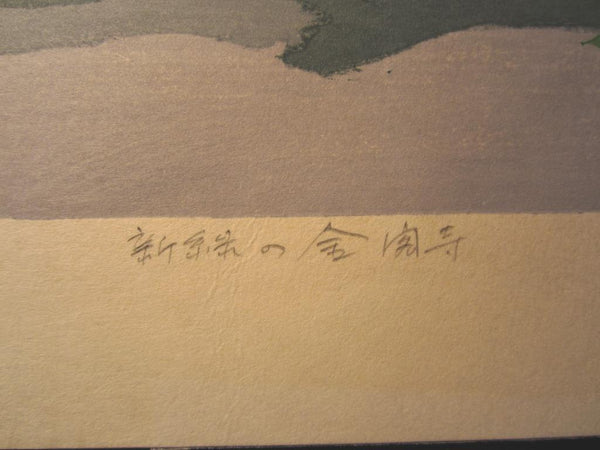 新緑の金閣寺